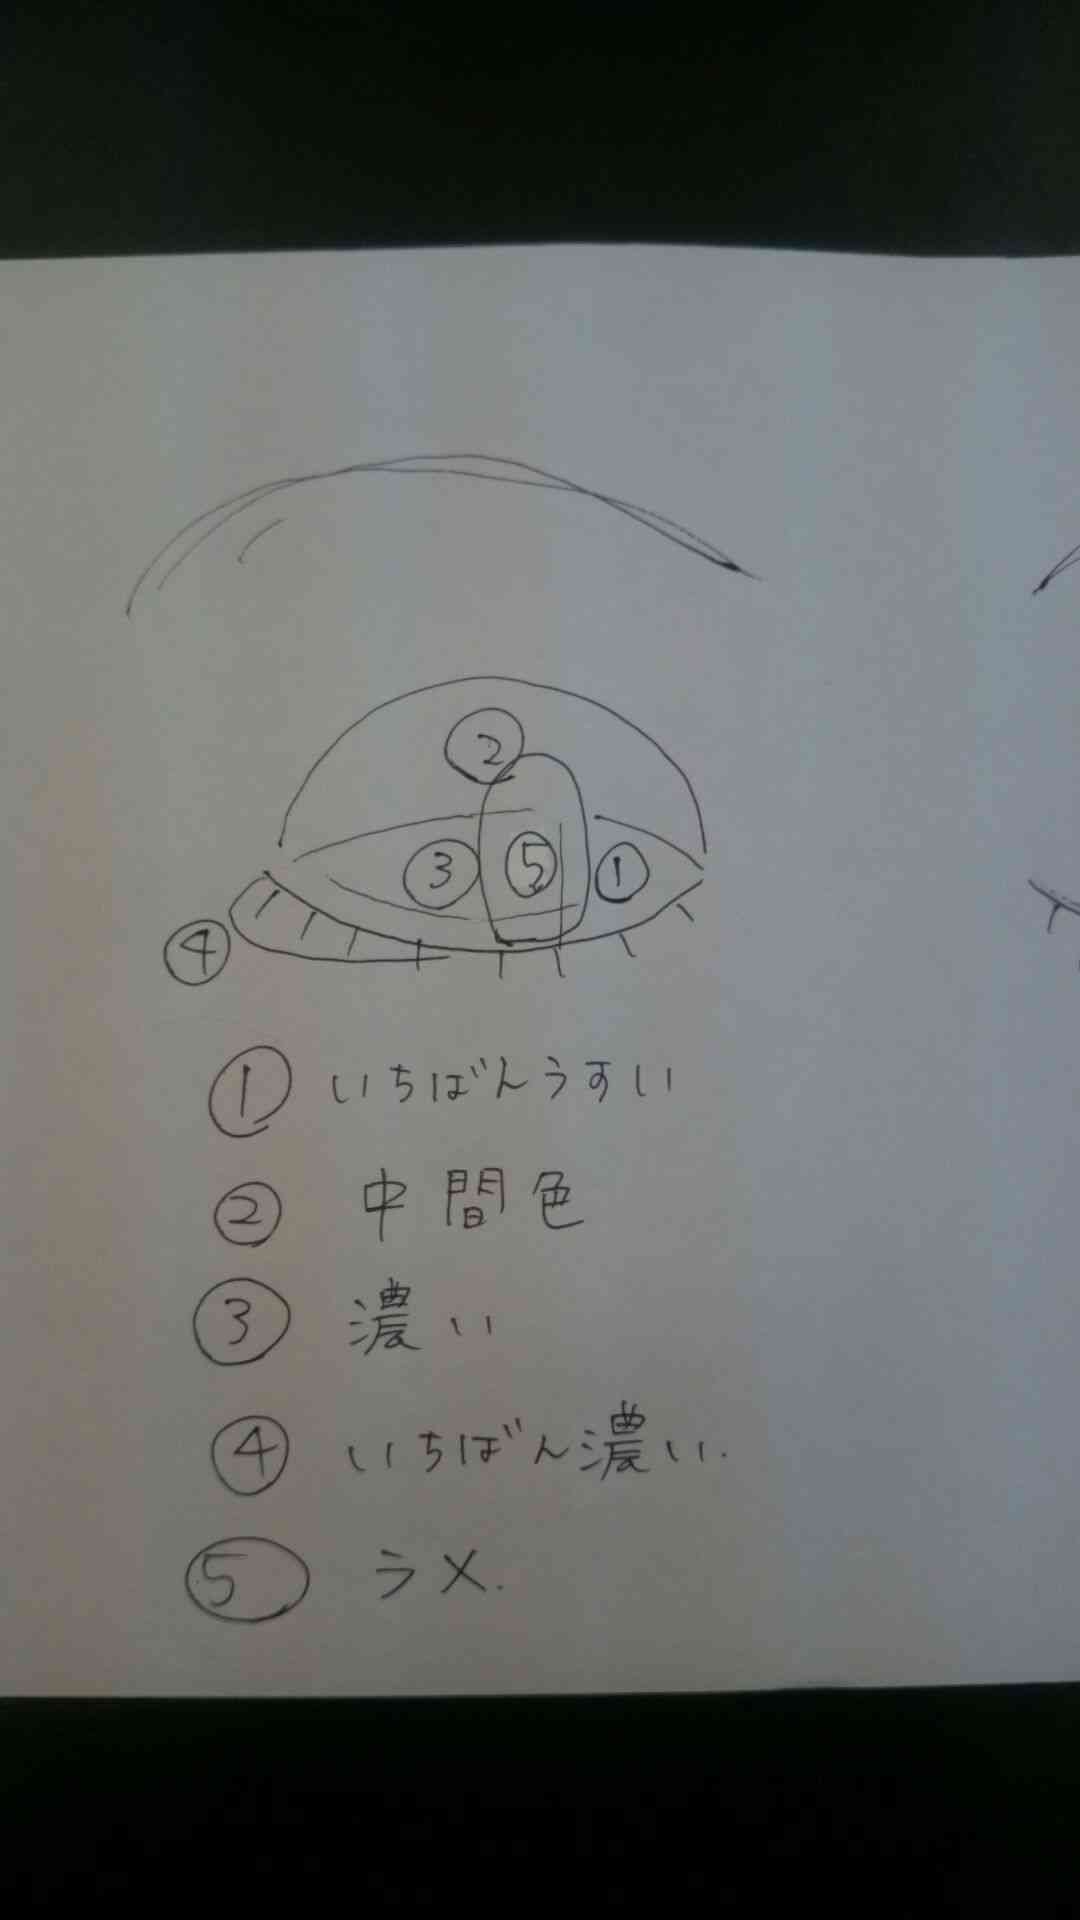 ②
③ ⑤ ①
④
① いちばんうすい
② 中間色
③ 濃い
④ いちばん濃い.
⑤ ラメ.